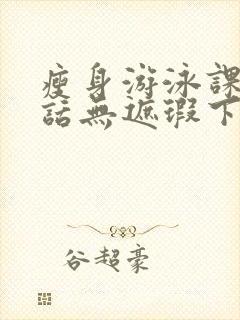 瘦身游泳課
話無遮瑕下
谷超豪